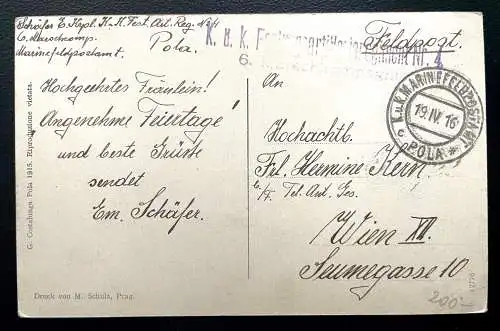 Schäfer E. Kzpl. K.K. Fest. Art. Reg. No 4
6. Marschkomp.
Marinefeldpostamt
Pola.
K. u. k. Festungsartillerie
Nr. 4
6.
Feldpost.
K.u.K. MARINEFELDPOSTAMT
19.IV.16
c POLA *
Hochgeehrtes Fräulein!
Angenehme Feiertage!
und beste Grüsse
sendet
Em. Schäfer.
An
Hochachtb.
Frl. Hermine Kern
b/F. Tel. Ant. Ges.
Wien XII.
Seumegasse 10
G. Costalunga, Pola 1915. Riproduzione vietata.
Druck von M. Schulz, Prag.
200.-